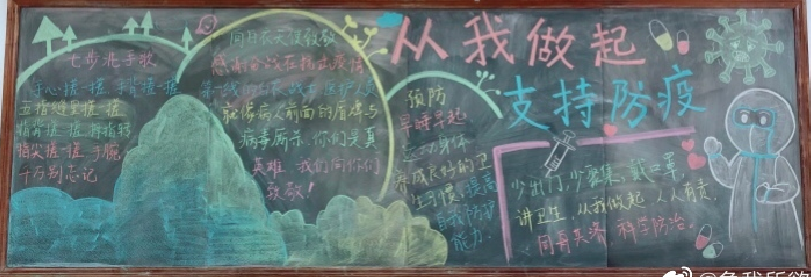 七步洗手歌
手心搓一搓 手背搓一搓
五指缝里搓一搓
指背搓一搓 拇指转
指尖搓一搓 手腕
千万别忘记
向白衣天使致敬
感谢奋战在抗击疫情
第一线的白衣战士 医护人员
就像病人前面的盾牌与
病毒厮杀,你们是真
英雄,我们向你们
致敬!
从我做起
支持防疫
预防
早睡早起
运动身体
养成良好的卫
生习惯,提高
自我防护
能力.
少出门,少聚集,戴口罩,
讲卫生,从我做起 人人有责,
同舟共济,科学防治。